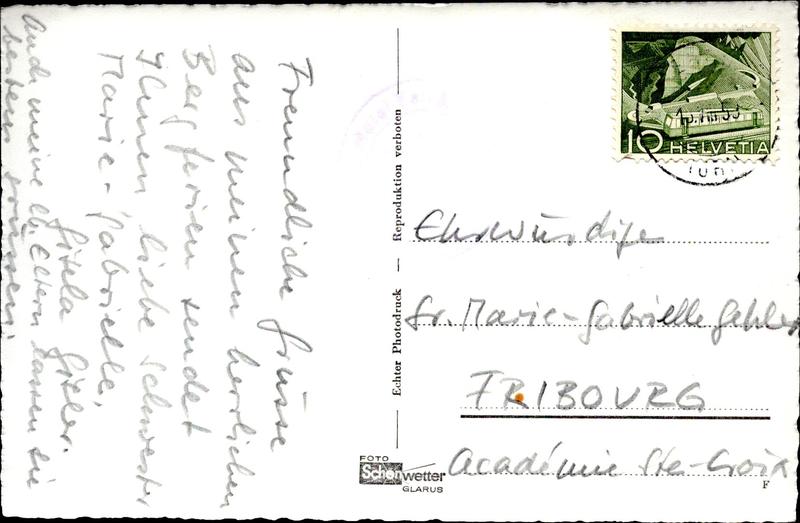 Freundliche Grüsse
aus meinen herrlichen
Bergferien sendet
Ihnen, liebe Schwester
Marie-Gabrielle,
Gisela Gisler.
Auch meine lb. Eltern lassen Sie
bestens grüssen!
Echter Photodruck — Reproduktion verboten
10 HELVETIA
Ehrwürdige
Sr. Marie-Gabrielle
FRIBOURG
Académie Ste-Croix
FOTO
Schönwetter
GLARUS
F